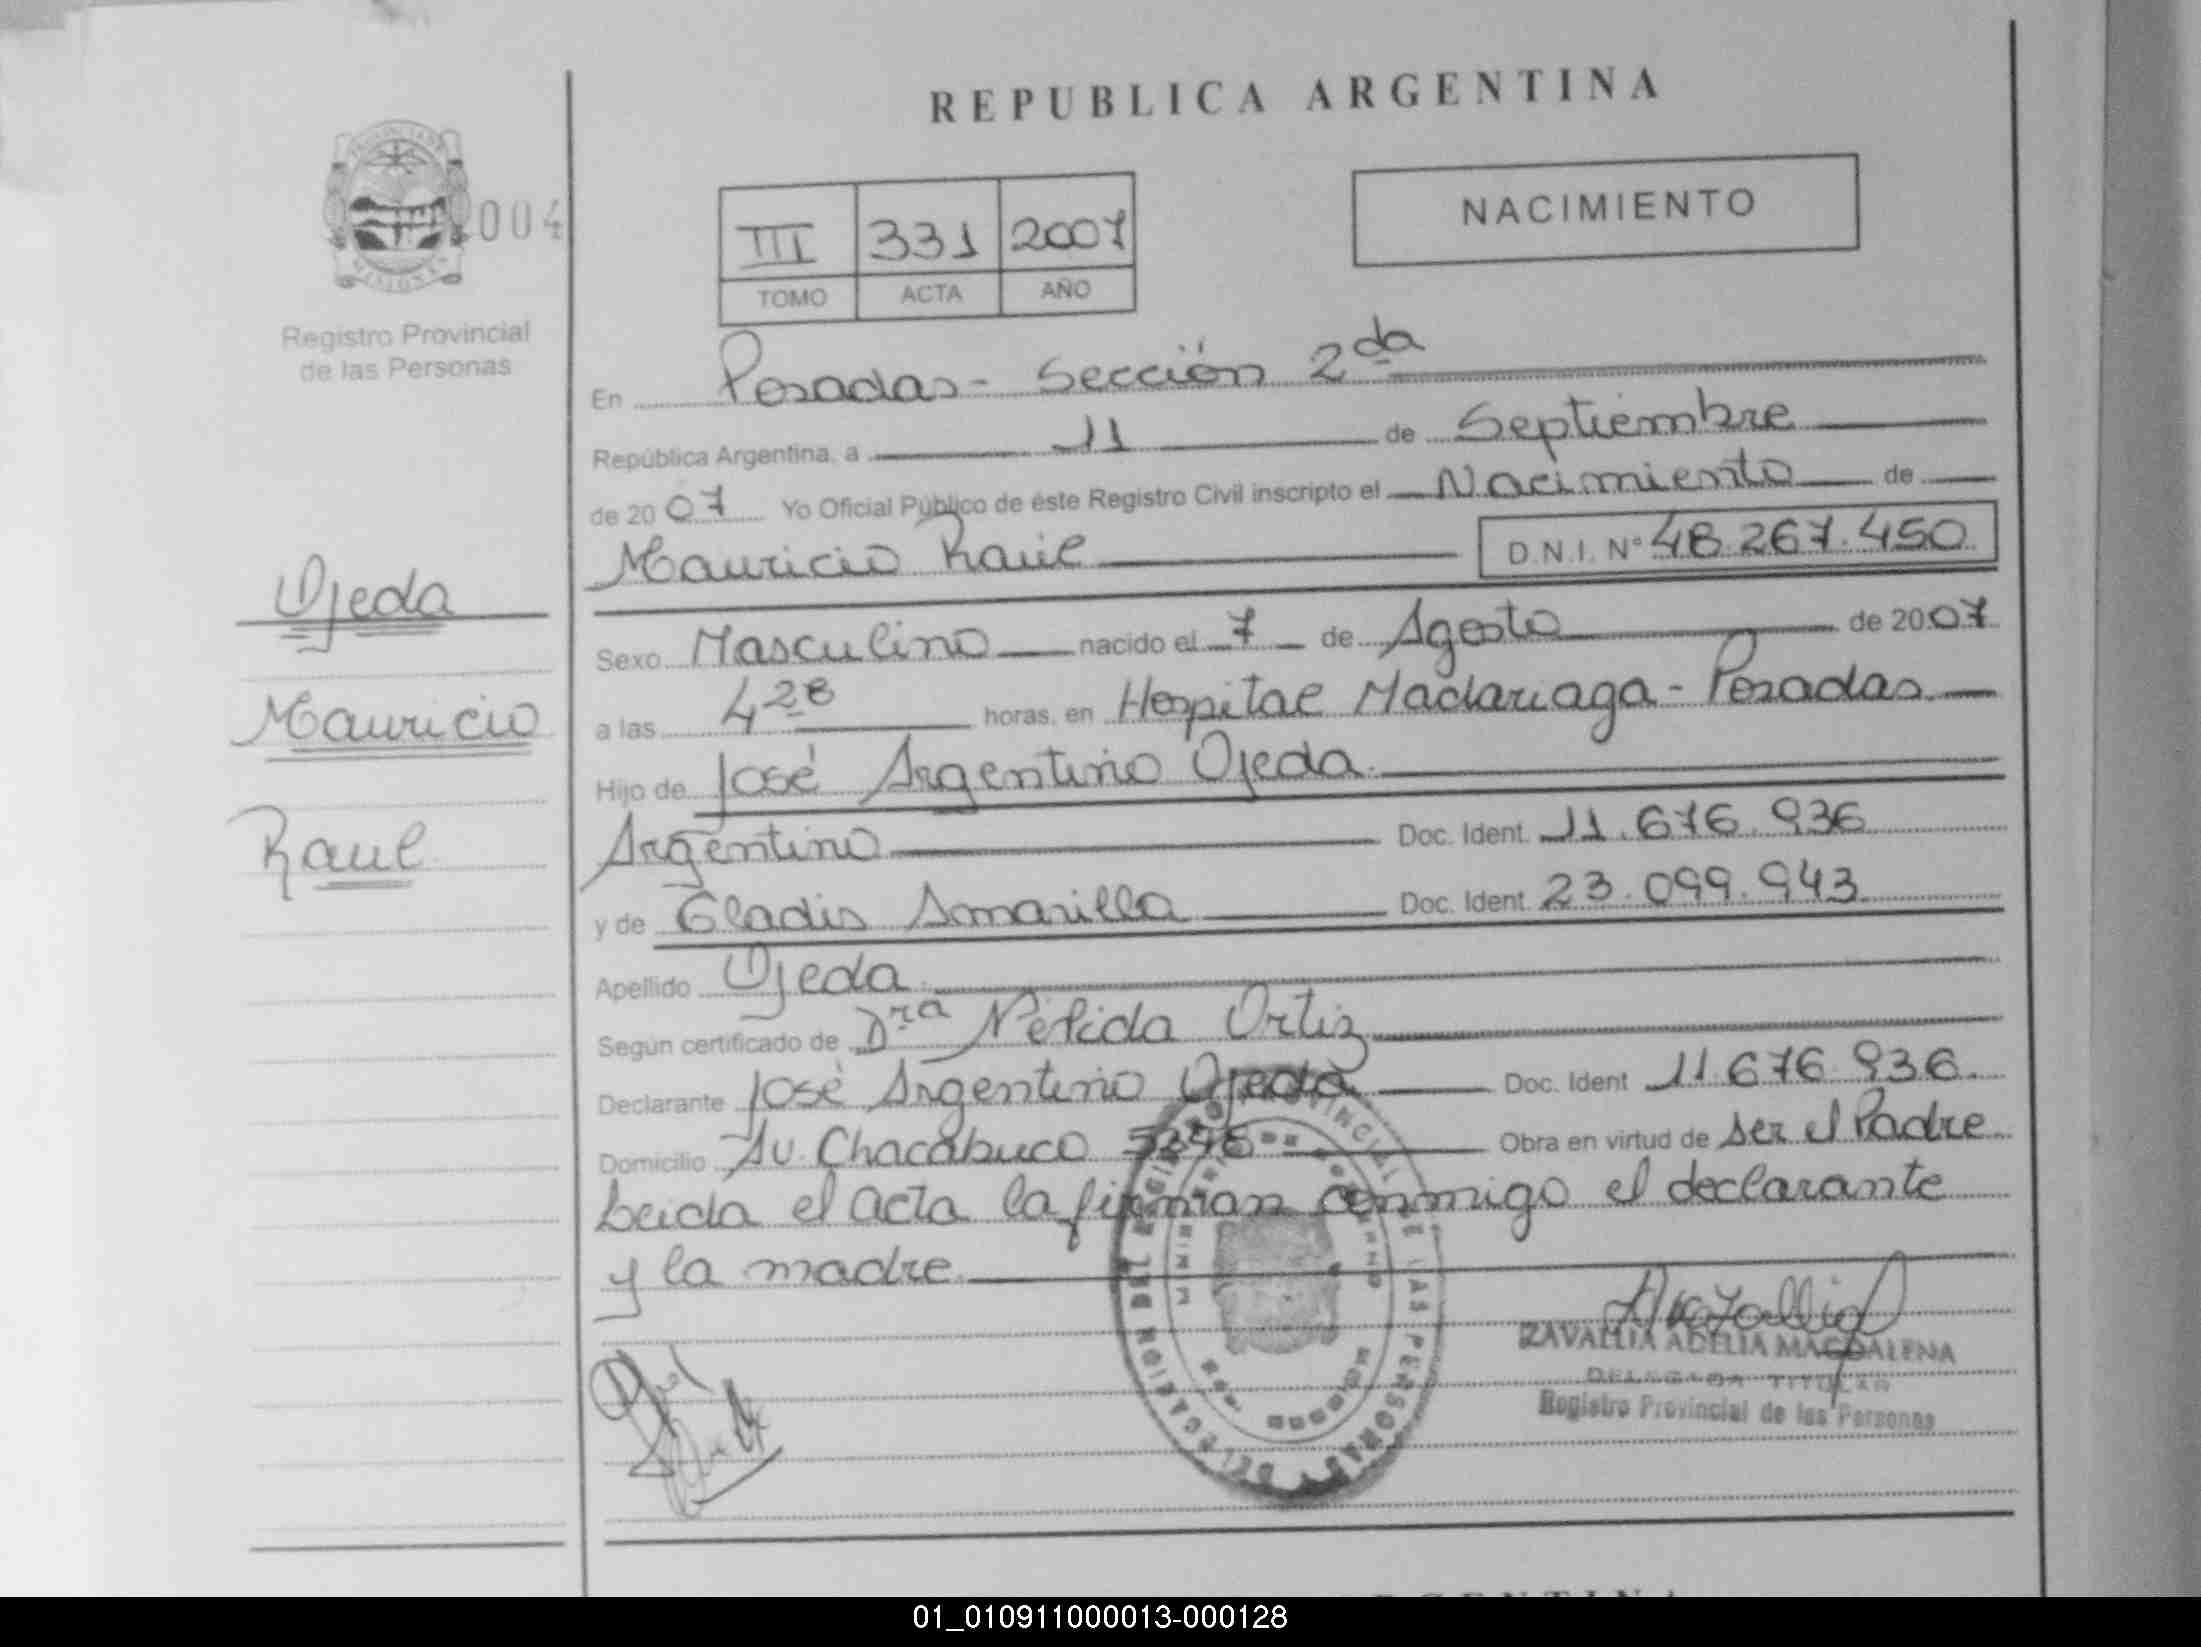 REPUBLICA ARGENTINA
NACIMIENTO
III 331 2007
TOMO ACTA AÑO
004
Registro Provincial
de las Personas
En Posadas - Sección 2da
República Argentina, a 11 de Septiembre
de 2007 Yo Oficial Público de éste Registro Civil inscripto el Nacimiento de
Mauricio Raúl D.N.I. Nº 48.267.450
Ojeda
Mauricio
Raúl
Sexo Masculino nacido el 7 de Agosto de 2007
a las 4 28 horas, en Hospital Madariaga - Posadas
Hijo de José Argentino Ojeda
Argentino Doc. Ident. 11.676.936
y de Gladis Amarilla Doc. Ident. 23.099.943
Apellido Ojeda
Según certificado de Dra Nélida Ortiz
Declarante José Argentino Ojeda Doc. Ident 11.676.936.
Domicilio Av. Chacabuco Obra en virtud de ser el Padre
Leida el acta la firman conmigo el declarante
y la madre
ZAVALLIA ADELIA MAGDALENA
DELEGADA TITULAR
Registro Provincial de las Personas
01_010911000013-000128